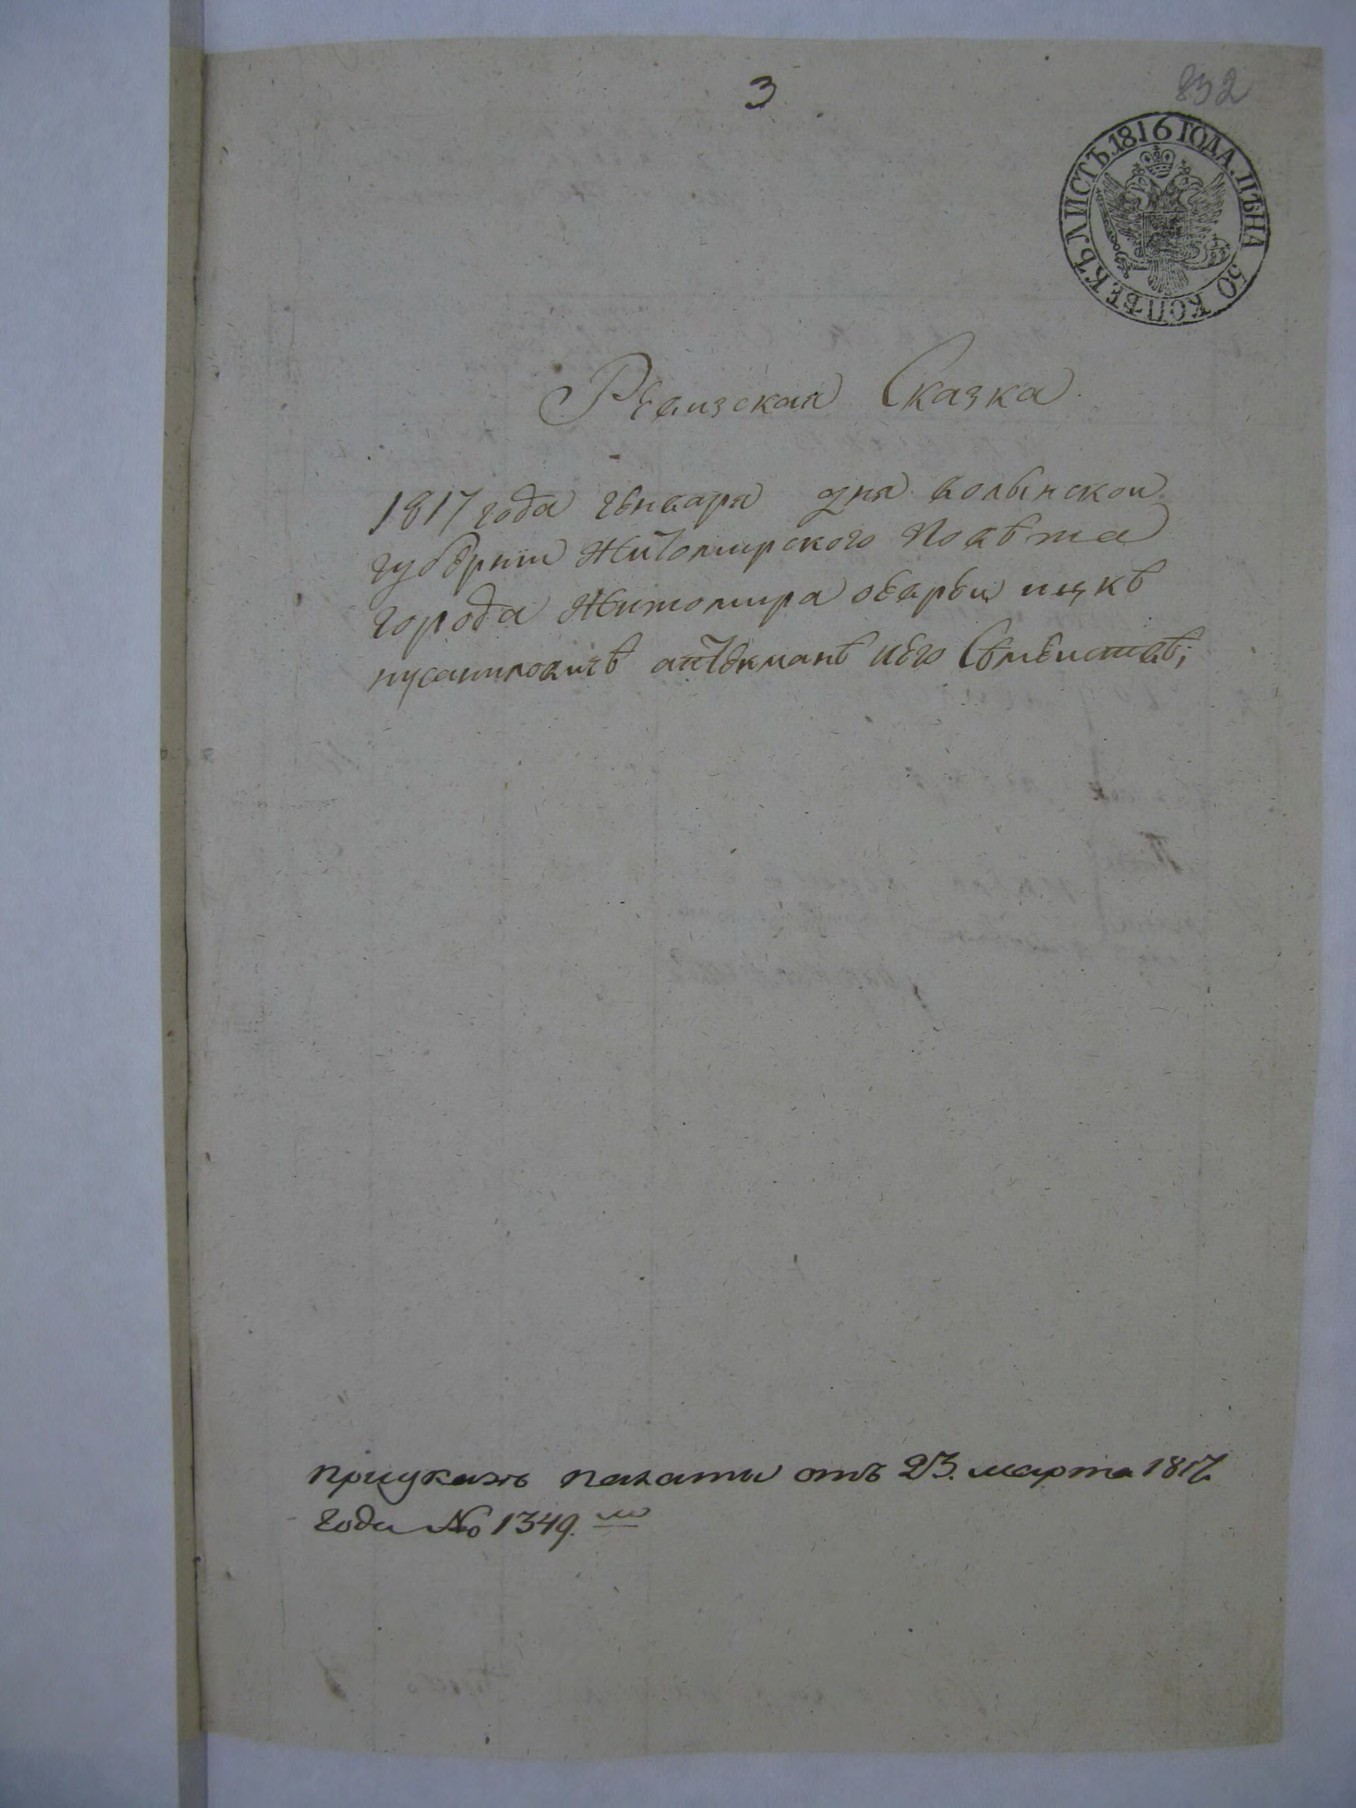 3
832
ЛИСТЪ. 1816 ГОДА. ЦѢНА 50 КОПѢЕКЪ
Ревизская Сказка
1817 года генваря дня волынской
губернїи Житомирского Повѣта
города Житомира оеврѣи ицкъ
его Семействѣ;
приуказѣ палаты отъ 23. марта 1817.
года № 1349. м